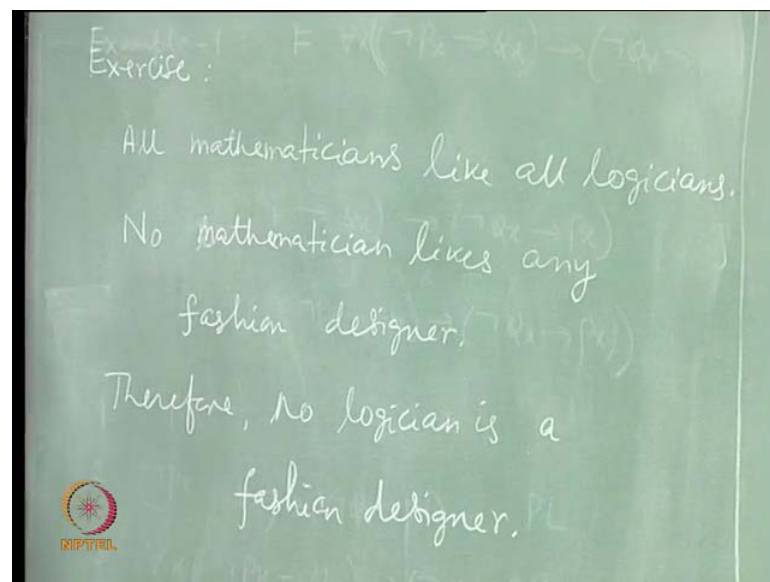 Exercise:
All mathematicians like all logicians.
No mathematician likes any
fashion designer.
Therefore, no logician is a
fashion designer.
NPTEL